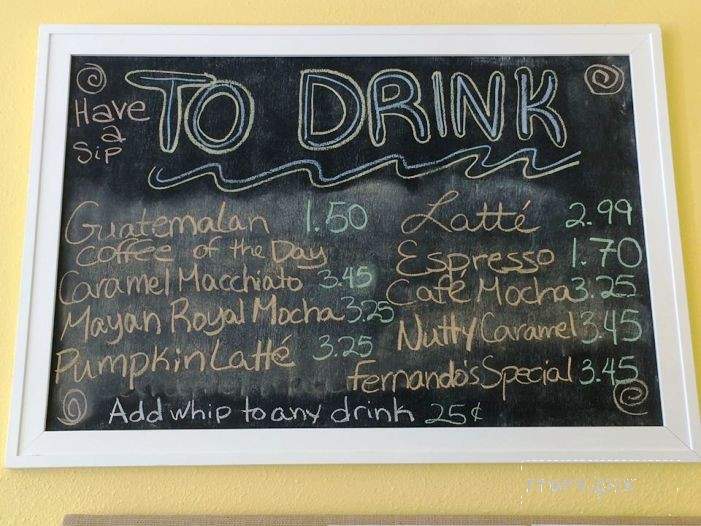 TO DRINK
Have
a
Sip
Guatemalan 1.50
Coffee of the Day
Caramel Macchiato 3.45
Mayan Royal Mocha 3.25
Pumpkin Latté 3.25
Latté 2.99
Espresso 1.70
Café Mocha 3.25
Nutty Caramel 3.45
Fernando's Special 3.45
Add whip to any drink 25¢